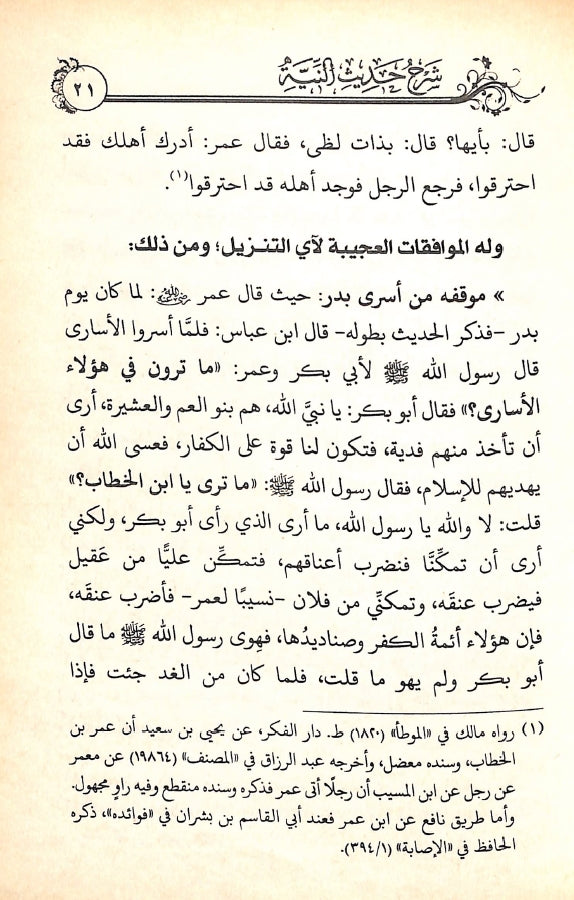 شَرْحُ حَدِيثِ النِّيَّةِ
٢١
قال: بأيها؟ قال: بذات لظى، فقال عمر: أدرك أهلك فقد
احترقوا، فرجع الرجل فوجد أهله قد احترقوا(١).
وله الموافقات العجيبة لآي التنـزيل؛ ومن ذلك:
» موقفه من أسرى بدر: حيث قال عمر رضي الله عنه: لما كان يوم
بدر -فذكر الحديث بطوله- قال ابن عباس: فلمَّا أسروا الأسارى
قال رسول الله ﷺ لأبي بكر وعمر: «ما ترون في هؤلاء
الأسارى؟» فقال أبو بكر: يا نبيَّ الله، هم بنو العم والعشيرة، أرى
أن تأخذ منهم فدية، فتكون لنا قوة على الكفار، فعسى الله أن
يهديهم للإسلام، فقال رسول الله ﷺ: «ما ترى يا ابن الخطاب؟»
قلت: لا والله يا رسول الله، ما أرى الذي رأى أبو بكر، ولكني
أرى أن تمكِّنَّا فنضرب أعناقهم، فتمكِّن عليًّا من عَقيل
فيضرب عنقَه، وتمكنِّي من فلان -نسيبًا لعمر- فأضرب عنقَه،
فإن هؤلاء أئمةُ الكفر وصناديدُها، فهوِى رسول الله ﷺ ما قال
أبو بكر ولم يهو ما قلت، فلما كان من الغد جئت فإذا
(١) رواه مالك في «الموطأ» (١٨٢٠) ط. دار الفكر، عن يحيى بن سعيد أن عمر بن
الخطاب، وسنده معضل، وأخرجه عبد الرزاق في «المصنف» (١٩٨٦٤) عن معمر
عن رجل عن ابن المسيب أن رجلًا أتى عمر فذكره وسنده منقطع وفيه راوٍ مجهول.
وأما طريق نافع عن ابن عمر فعند أبي القاسم بن بشران في «فوائده»، ذكره
الحافظ في «الإصابة» (٣٩٤/١).